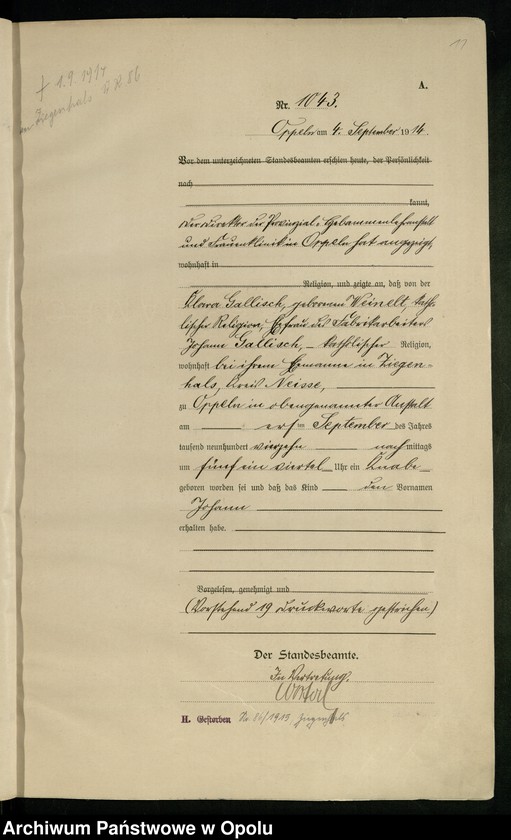 11
† 1.9.1914
Ziegenhals
A.
Nr. 1043.
Oppeln am 4. September 1914
Vor dem unterzeichneten Standesbeamten erschien heute, der Persönlichkeit
nach
kannt,
der Direktor der Provinzial-Hebammenlehranstalt
und Frauenklinik in Oppeln hat angezeigt,
wohnhaft in
Religion, und zeigte an, daß von der
Klara Gallisch, geborenen Weinelt, katho-
lischer Religion, Ehefrau des Fabrikarbeiters
Johann Gallisch, katholischer Religion,
wohnhaft bei ihrem Ehemanne in Ziegen-
hals, Kreis Neisse,
zu Oppeln in obengenannter Anstalt
am ersten September des Jahres
tausend neunhundert vierzehn nachmittags
um fünf ein viertel Uhr ein Knabe
geboren worden sei und daß das Kind den Vornamen
Johann
erhalten habe.
Vorgelesen, genehmigt und
(Vorstehend 19 Druckworte gestrichen.)
Der Standesbeamte.
In Vertretung.
H. Gestorben Nr. 86/1915 Ziegenhals
Archiwum Państwowe w Opolu